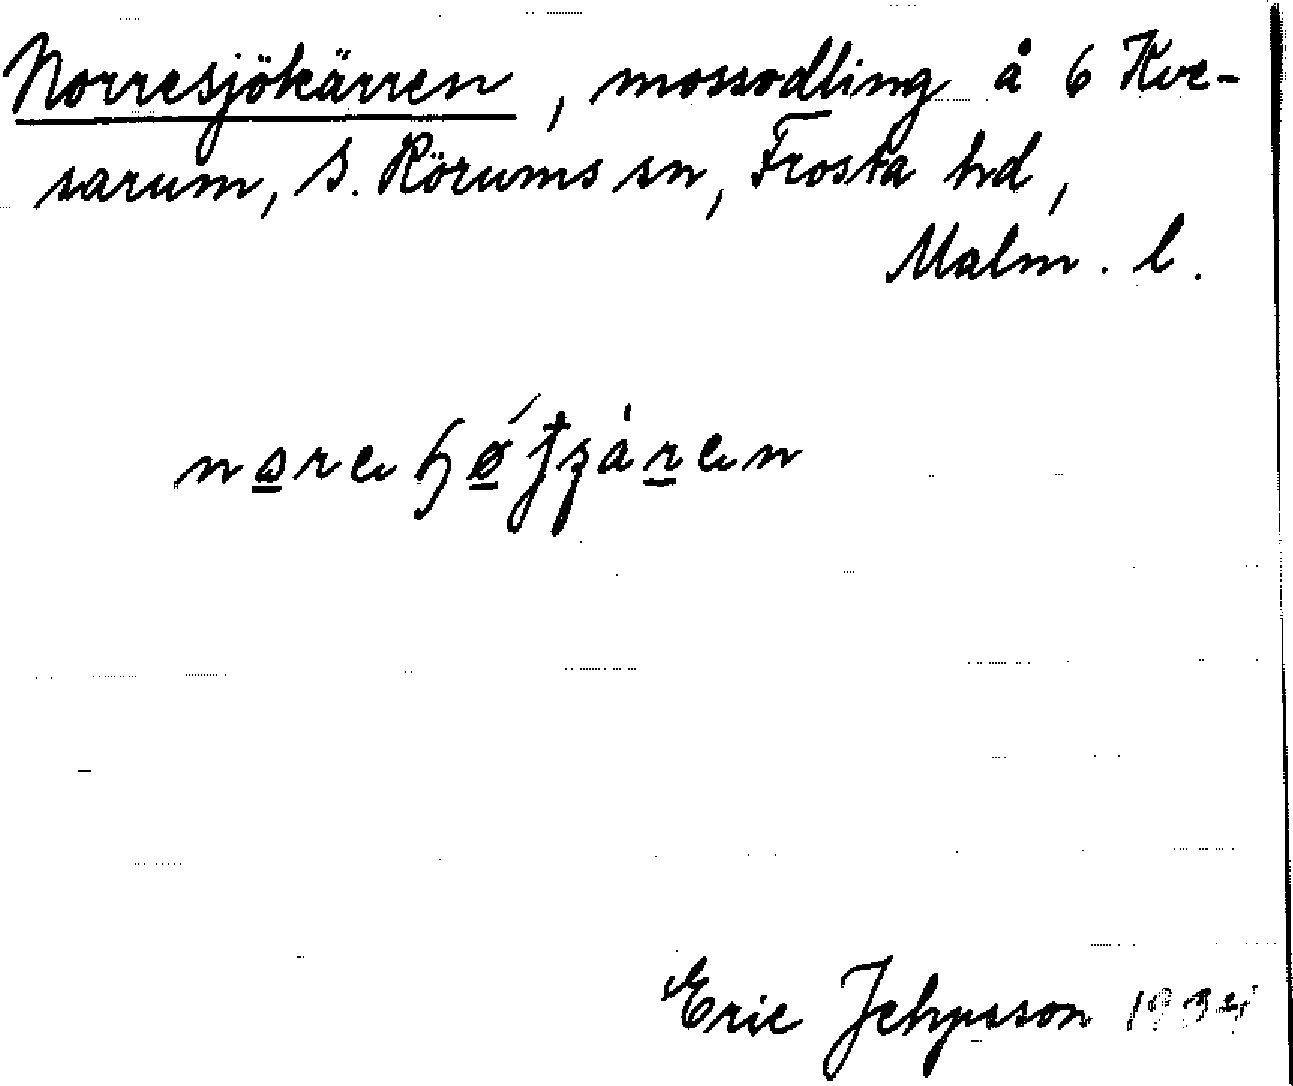 Norresjökärren, mossodling å 6 Kve-
sarum, S. Rörums sn, Frosta hd,
Malm. l.
Eric Jehpsson 1934